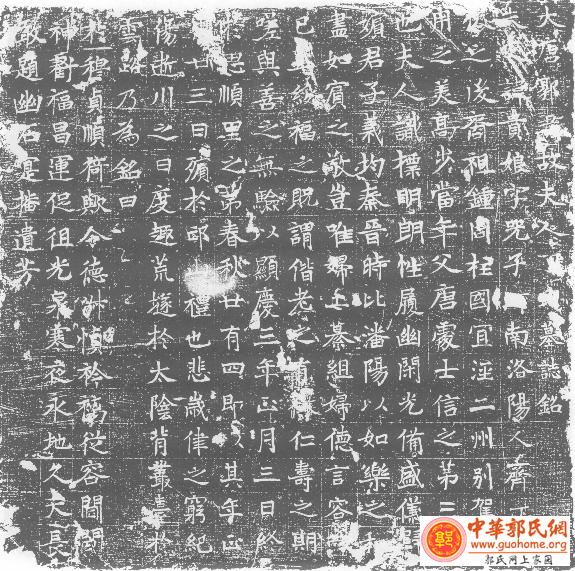 大唐郭 故夫人 墓誌銘
貴娘字兕子 南洛陽人齊
之後裔祖鍾周柱國宜溼二州別駕
之美高步當年父唐處士信之第二
也夫人識標明朗性履幽閑光備盛儀
嬪君子義均秦晉時比潘陽以如樂之
盡如賓之敬豈唯婦工綦組婦德言容
已 紛福之既謂偕老之 仁壽之期
嗟與善之無驗以顯慶三年正月三日終
於思順里之第春秋廿有四即以其年正
廿三日殯於邙 禮也悲歲律之窮紀
傷逝川之日度趣荒墟於太陰背叢臺於
雲路乃為銘曰
貞順猗歟令德淑慎於禍從容閨閫
神翳福昌運促徂光泉寒夜永地久天長
敢題幽石是播遺芳
中華郭氏網
www.guohome.org
郭氏网上家园